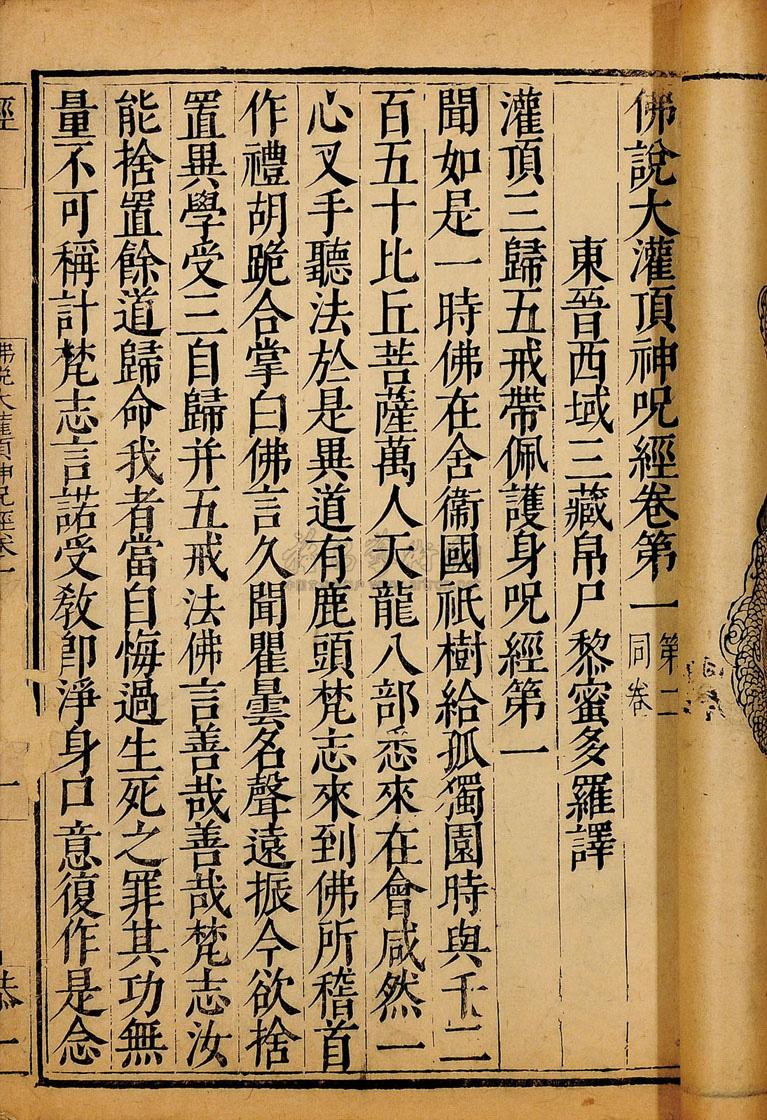 佛說大灌頂神呪經卷第一 第二同卷
東晉西域三藏帛尸黎蜜多羅譯
灌頂三歸五戒帶佩護身呪經第一
聞如是一時佛在舍衞國祇樹給孤獨園時與千二
百五十比丘菩薩萬人天龍八部悉來在會咸然一
心叉手聽法於是異道有鹿頭梵志來到佛所稽首
作禮胡跪合掌白佛言久聞瞿曇名聲遠振今欲捨
置異學受三自歸并五戒法佛言善哉善哉梵志汝
能捨置餘道歸命我者當自悔過生死之罪其功無
量不可稱計梵志言諾受敎卽淨身口意復作是念
經
佛說大灌頂神呪經卷一
一
恭一